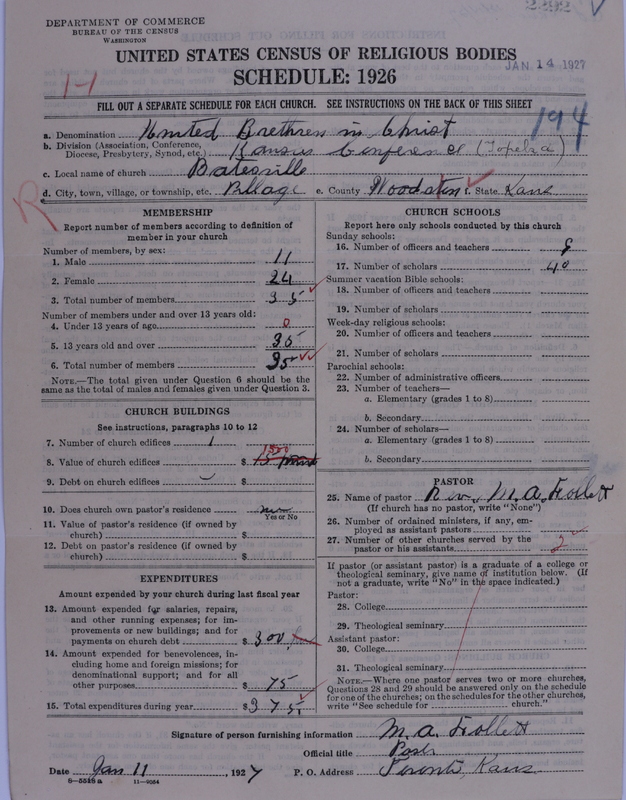 2292 V
DEPARTMENT OF COMMERCE
BUREAU OF THE CENSUS
WASHINGTON
UNITED STATES CENSUS OF RELIGIOUS BODIES
JAN 14 1927
SCHEDULE: 1926
1-1
FILL OUT A SEPARATE SCHEDULE FOR EACH CHURCH. SEE INSTRUCTIONS ON THE BACK OF THIS SHEET
194
a. Denomination United Brethren in Christ
b. Division (Association, Conference, Diocese, Presbytery, Synod, etc.) Kansas Conference (Topeka)
c. Local name of church Batesville
d. City, town, village, or township, etc. Village e. County Woodston f. State Kans
R
MEMBERSHIP
Report number of members according to definition of
member in your church
Number of members, by sex:
1. Male 11
2. Female 24
3. Total number of members 35
Number of members under and over 13 years old:
4. Under 13 years of age 0
5. 13 years old and over 35
6. Total number of members 35
NOTE.—The total given under Question 6 should be the
same as the total of males and females given under Question 3.
CHURCH BUILDINGS
See instructions, paragraphs 10 to 12
7. Number of church edifices 1
1500
8. Value of church edifices $
9. Debt on church edifices $
10. Does church own pastor's residence no
Yes or No
11. Value of pastor's residence (if owned by
church) $
12. Debt on pastor's residence (if owned by
church) $
EXPENDITURES
Amount expended by your church during last fiscal year
13. Amount expended for salaries, repairs,
and other running expenses; for im-
provements or new buildings; and for
payments on church debt $ 300
14. Amount expended for benevolences, in-
cluding home and foreign missions; for
denominational support; and for all
other purposes $ 75
15. Total expenditures during year $ 375
CHURCH SCHOOLS
Report here only schools conducted by this church
Sunday schools:
16. Number of officers and teachers 8
17. Number of scholars 40
Summer vacation Bible schools:
18. Number of officers and teachers
19. Number of scholars
Week-day religious schools:
20. Number of officers and teachers
21. Number of scholars
Parochial schools:
22. Number of administrative officers
23. Number of teachers—
a. Elementary (grades 1 to 8)
b. Secondary
24. Number of scholars—
a. Elementary (grades 1 to 8)
b. Secondary
PASTOR
25. Name of pastor Rev. M. A. Follett
(If church has no pastor, write "None")
26. Number of ordained ministers, if any, em-
ployed as assistant pastors
27. Number of other churches served by the
pastor or his assistants 2
If pastor (or assistant pastor) is a graduate of a college or
theological seminary, give name of institution below. (If
not a graduate, write "No" in the space indicated.)
Pastor:
28. College
29. Theological seminary
Assistant pastor:
30. College
31. Theological seminary
NOTE.—Where one pastor serves two or more churches,
Questions 28 and 29 should be answered only on the schedule
for one of the churches; on the schedules for the other churches,
write "See schedule for church."
Signature of person furnishing information M. A. Follett
Official title Pastr
Date Jan 11, 1927 P. O. Address Toronto, Kans
8—5518 a 11—9054